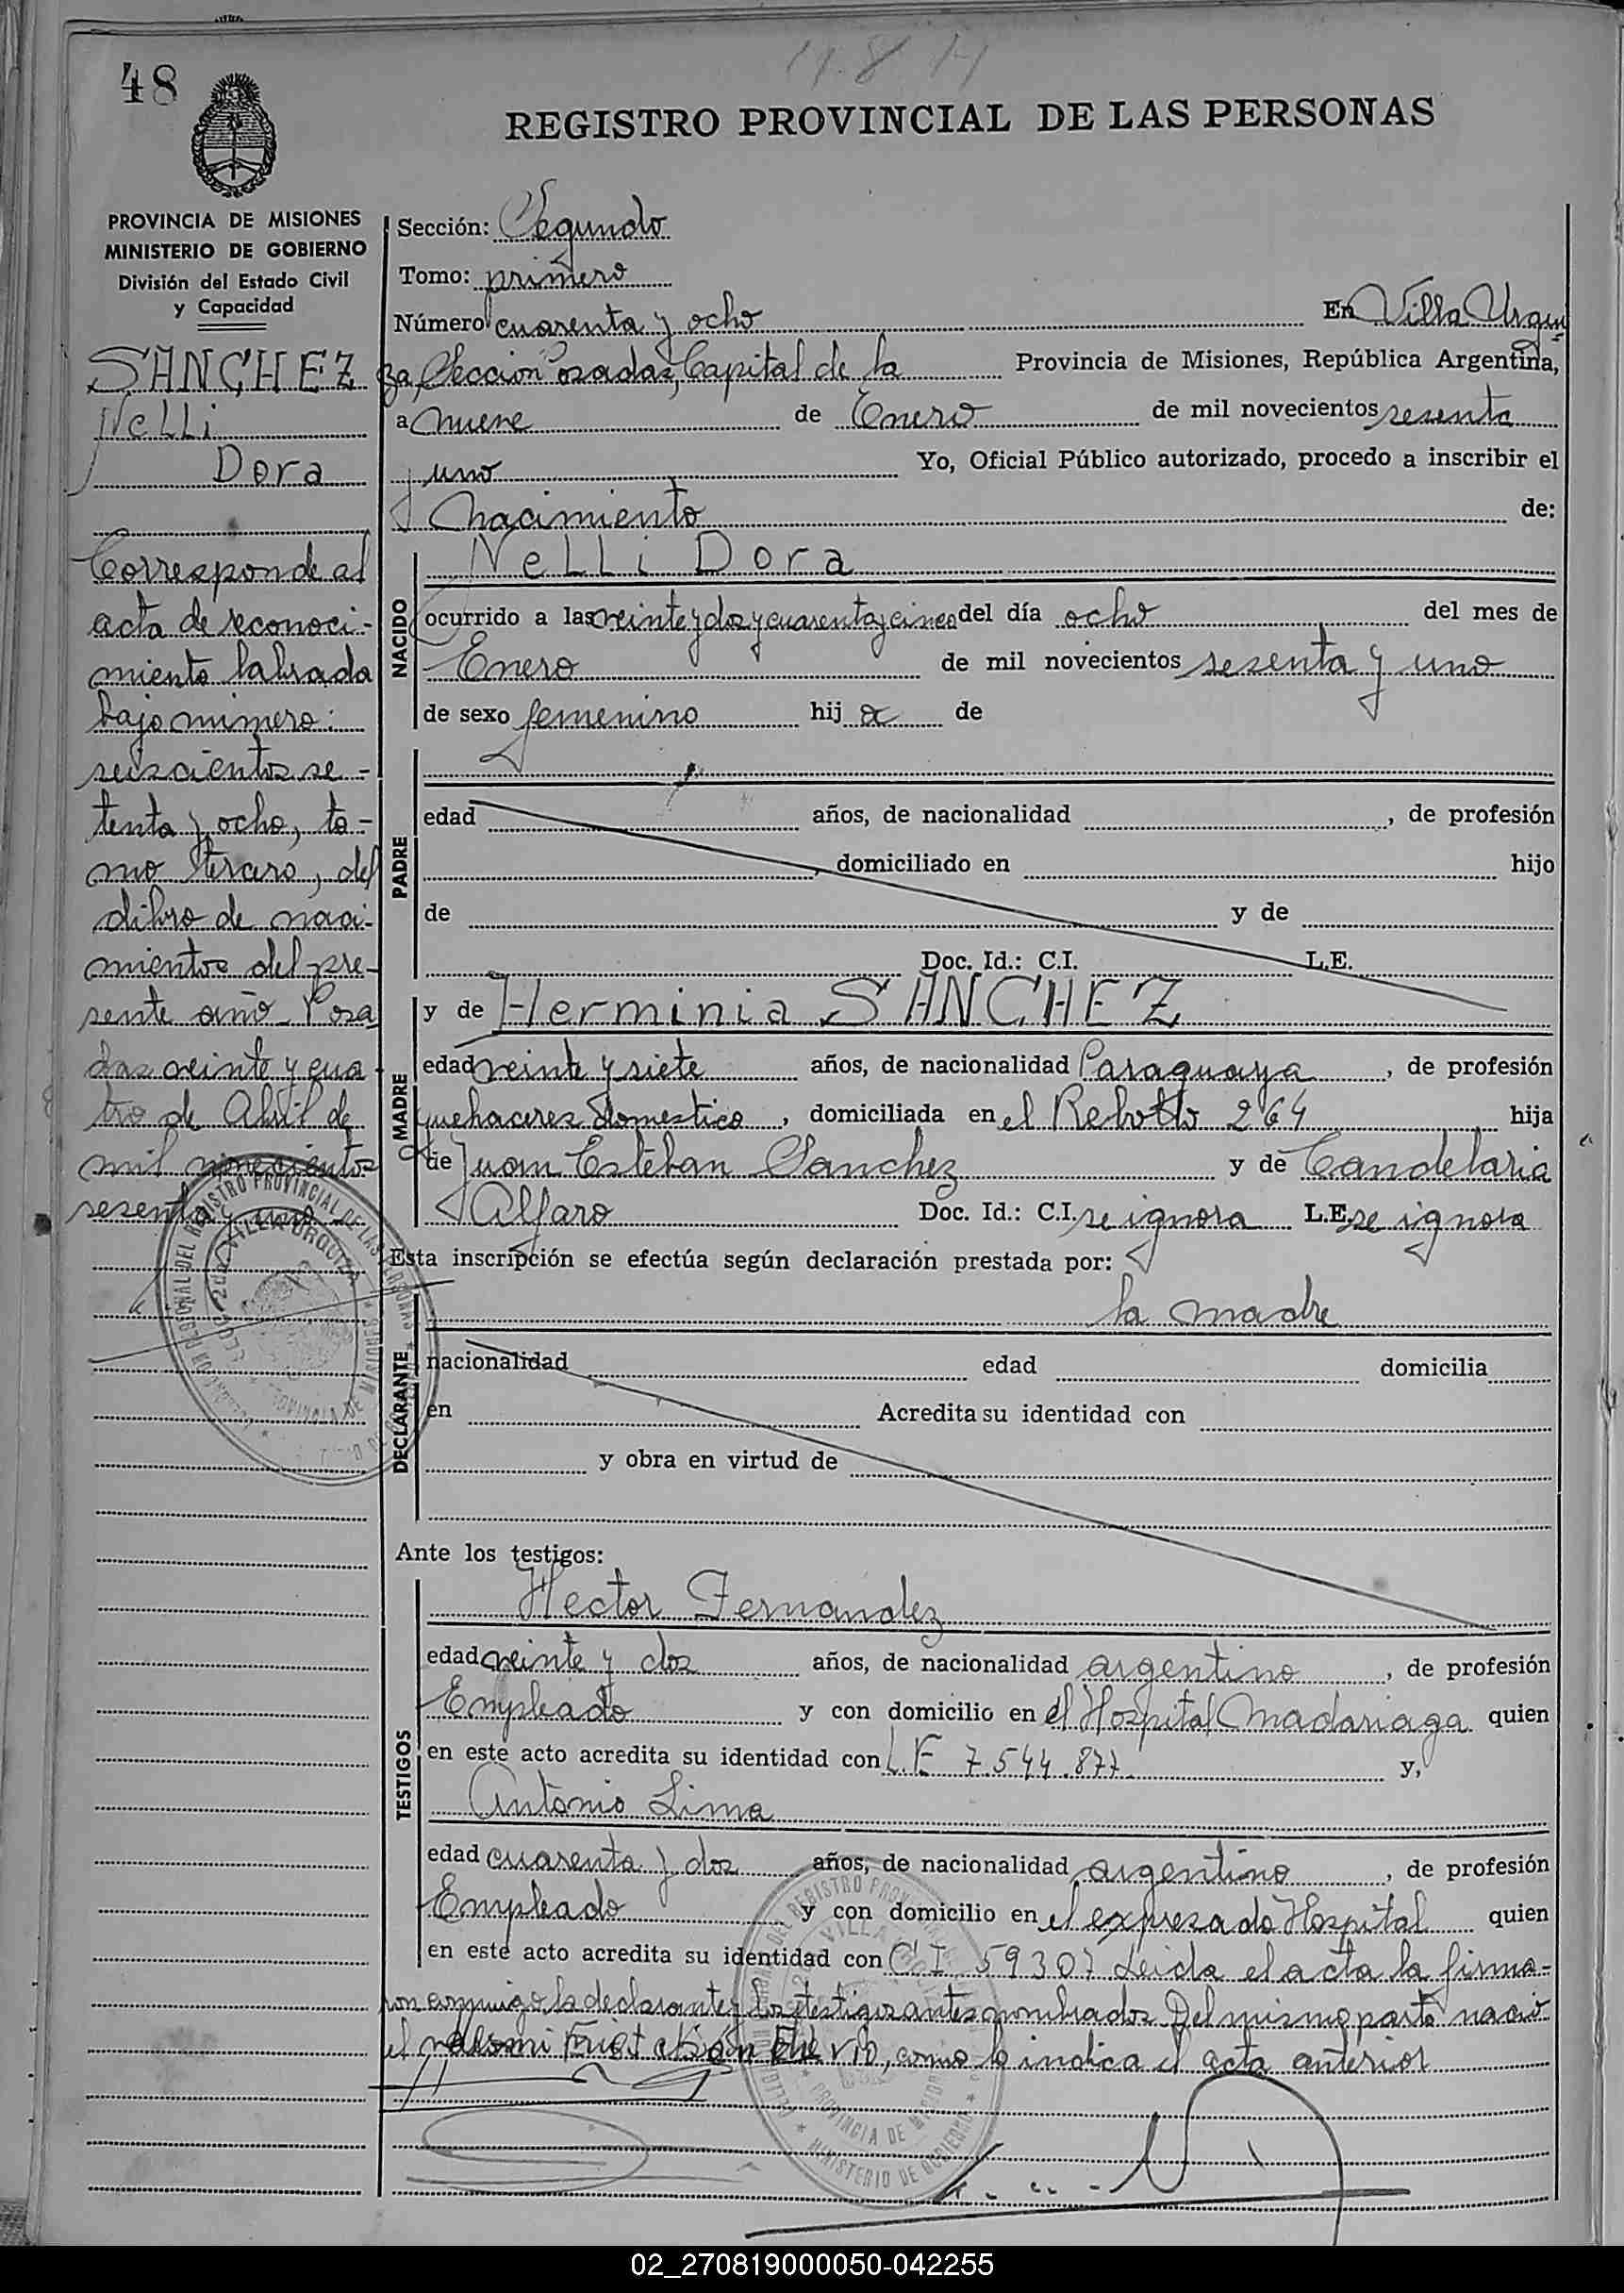 48
REGISTRO PROVINCIAL DE LAS PERSONAS
PROVINCIA DE MISIONES
MINISTERIO DE GOBIERNO
División del Estado Civil
y Capacidad
SANCHEZ
Nelli
Dora
Corresponde al
acta de reconoci-
miento labrada
bajo número:
seiscientos se-
tenta y ocho, to-
mo tercero, del
libro de naci-
mientos del pre-
sente año Posa
das veinte y cua
tro de Abril de
mil novecientos
sesenta y uno
Sección: Segundo
Tomo: primero
Número cuarenta y ocho En Villa Urqui
za, Sección Posadas, Capital de la Provincia de Misiones, República Argentina,
a nueve de Enero de mil novecientos sesenta
y uno Yo, Oficial Público autorizado, procedo a inscribir el
Nacimiento de:
NACIDO
Nelli Dora
ocurrido a las veinte y dos y cuarenta y cinco del día ocho del mes de
Enero de mil novecientos sesenta y uno
de sexo femenino hij a de
PADRE
edad años, de nacionalidad , de profesión
, domiciliado en hijo
de y de
Doc. Id.: C.I. L.E.
MADRE
y de Herminia SANCHEZ
edad veinte y siete años, de nacionalidad Paraguaya, de profesión
quehaceres domestico, domiciliada en el Rebollo 264 hija
de Juan Esteban Sanchez y de Candelaria
Alfaro Doc. Id.: C.I. se ignora L.E. se ignora
Esta inscripción se efectúa según declaración prestada por:
DECLARANTE
la madre
nacionalidad edad domicilia
en Acredita su identidad con
y obra en virtud de
Ante los testigos:
TESTIGOS
Hector Fernandez
edad veinte y dos años, de nacionalidad argentino, de profesión
Empleado y con domicilio en el Hospital Madariaga quien
en este acto acredita su identidad con L.E 7.544.877 y,
Antonio Lima
edad cuarenta y dos años, de nacionalidad argentino, de profesión
Empleado y con domicilio en el expresado Hospital quien
en este acto acredita su identidad con C I 59307 Leida el acta la firma-
ron conmigo la declarante y los testigos antes nombrados. Del mismo parto nació
el como lo indica el acta anterior
02_270819000050-042255